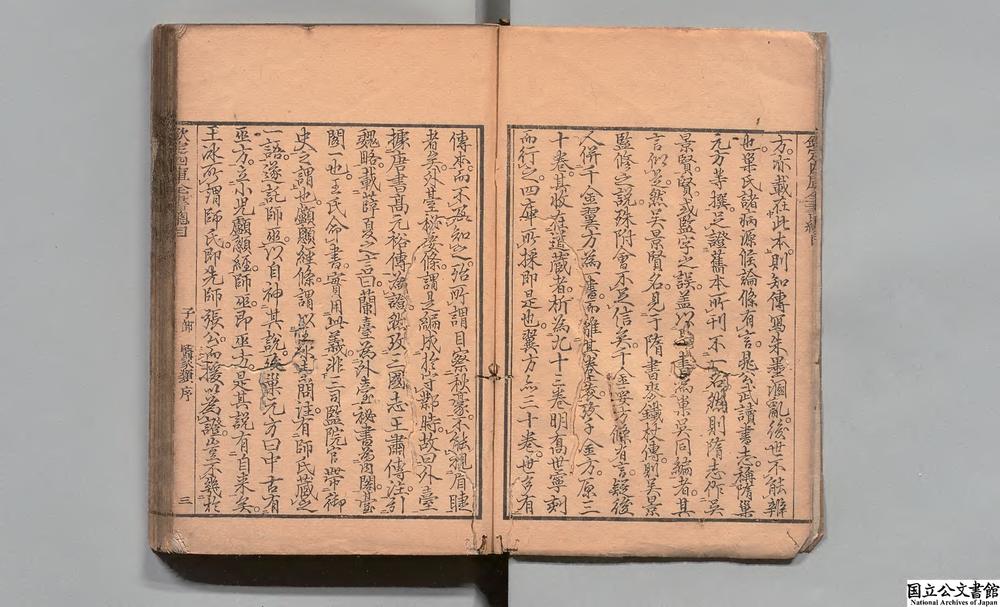 方亦載在此本則知傳寫朱墨溷亂後世不能辨
也巢氏諸病源候論條有言晁公武讀書志稱隋巢
元方等撰足證舊本所刊不一名然則隋志作吳
景賢賢或監字之誤蓋 一書 巢吳同編者其
言似是然吳景賢名見于隋書麥鐵杖傳則吳景
監修之說殊附會不足信矣千金要方條有言疑後
人併千金翼方為一書而離其卷裹孜千金方原三
十卷其收在道藏者析為九十三卷明喬世寧刻
而行之四庫所採即是也翼方亦三十卷世亦有
傳本而不及知之殆所謂目察秋豪不能視眉睫
者矣外臺秘要條謂是編成於守鄴時故曰外臺
據唐書高元裕傳為證然攷三國志王肅傳注引
魏略載薛夏之言曰蘭臺為外臺祕書為內閣臺
閣一也王氏命書實用此義非三司監院官帶御
史之謂也顱顖經條謂 素問注有師氏藏之
一語遂託師巫以自神其說 巢元方曰中古有
巫方立小兒顱顖經師巫即巫方是其說有自来矣
王冰所謂師氏即先師張公而援以為證豈不幾於
子部 醫家類序 三
国立公文書館
National Archives of Japan